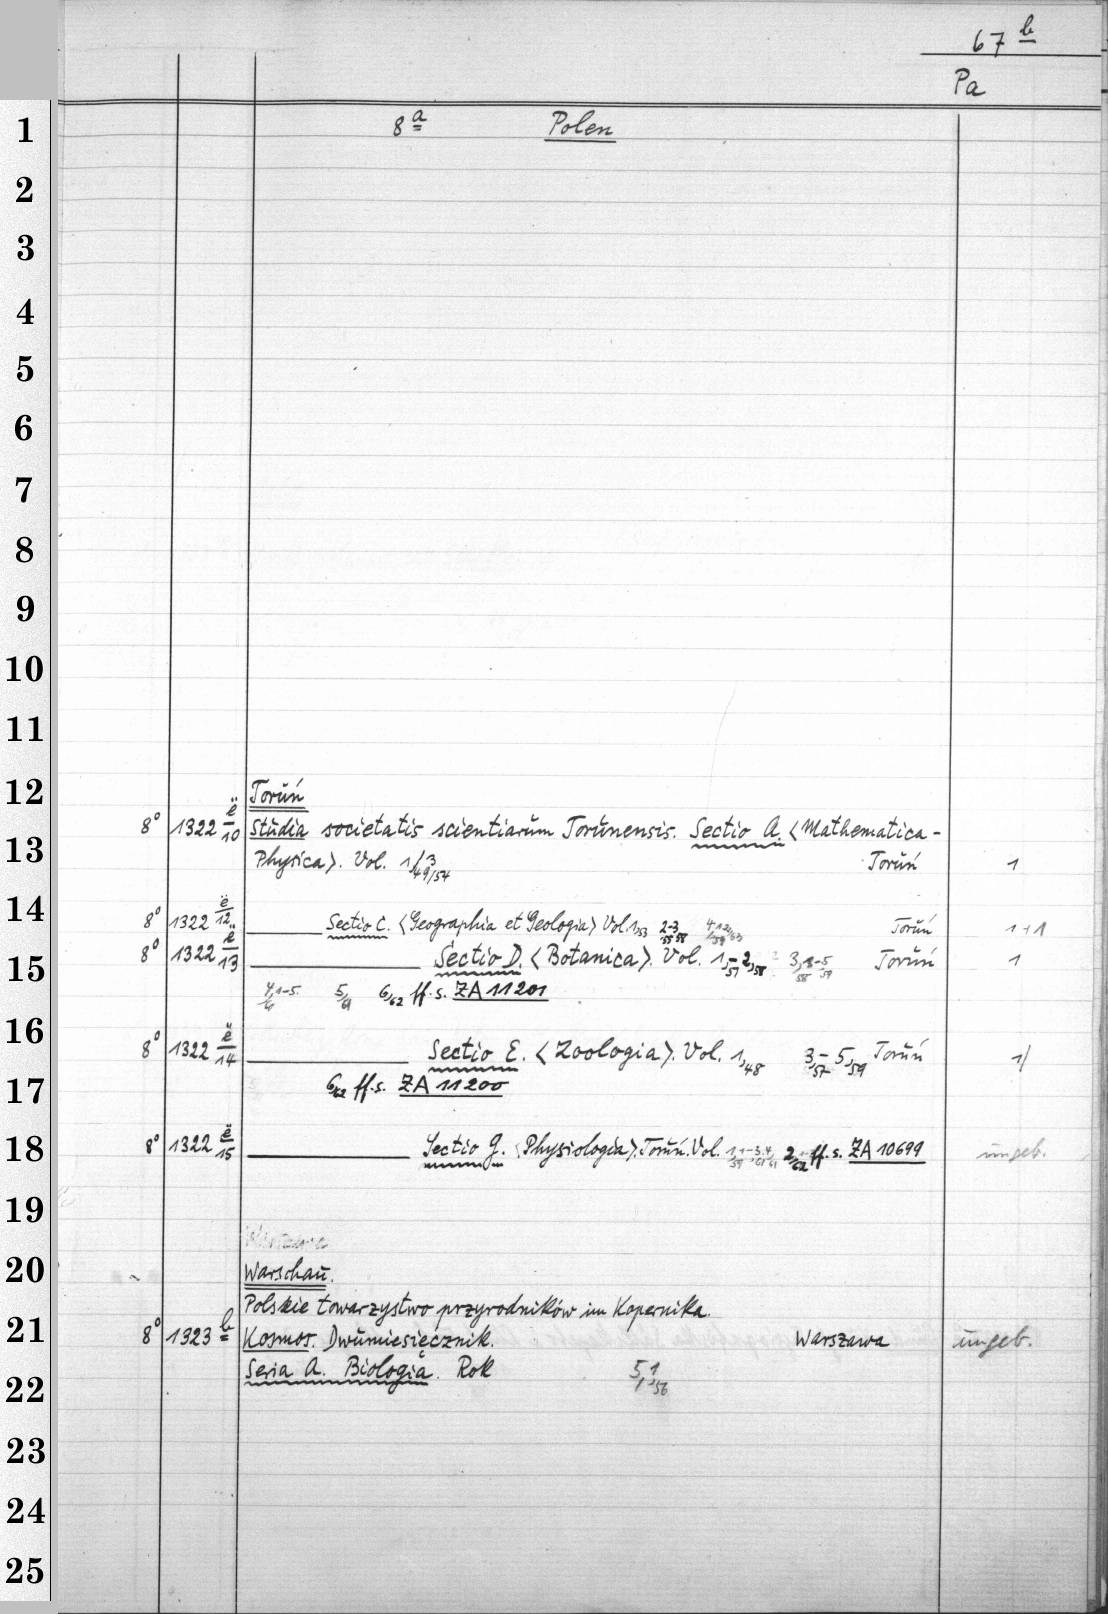 67 b
Pa
8 a Polen
Toruń
8° 1322 ë/10 Studia societatis scientiarum Torunensis. Sectio A. <Mathematica-
Physica>. Vol. 1/3 49/54 Toruń 1
8° 1322 ë/12 Sectio C. <Geographia et Geologia> Vol. 1,53 2-3 55 58 Toruń 1+1
8° 1322 ë/13 Sectio D. <Botanica>. Vol. 1,51- 2,58 3,1-5 58 59 Toruń 1
4,1-5. 5/61 6,62 ff. s. ZA 11201
8° 1322 ë/14 Sectio E. <Zoologia>. Vol. 1,48 3,57- 5,59 Toruń 1
6,62 ff. s. ZA 11200
8° 1322 ë/15 Sectio G. <Physiologia>. Toruń. Vol. 2,62 ff. s. ZA 10699 ungeb.
Warszawa
Warschau.
Polskie towarzystwo przyrodników im Kopernika.
8° 1323 b Kosmos. Dwumiesięcznik. Warszawa ungeb.
Seria A. Biologia. Rok 5,1,56
1
2
3
4
5
6
7
8
9
10
11
12
13
14
15
16
17
18
19
20
21
22
23
24
25